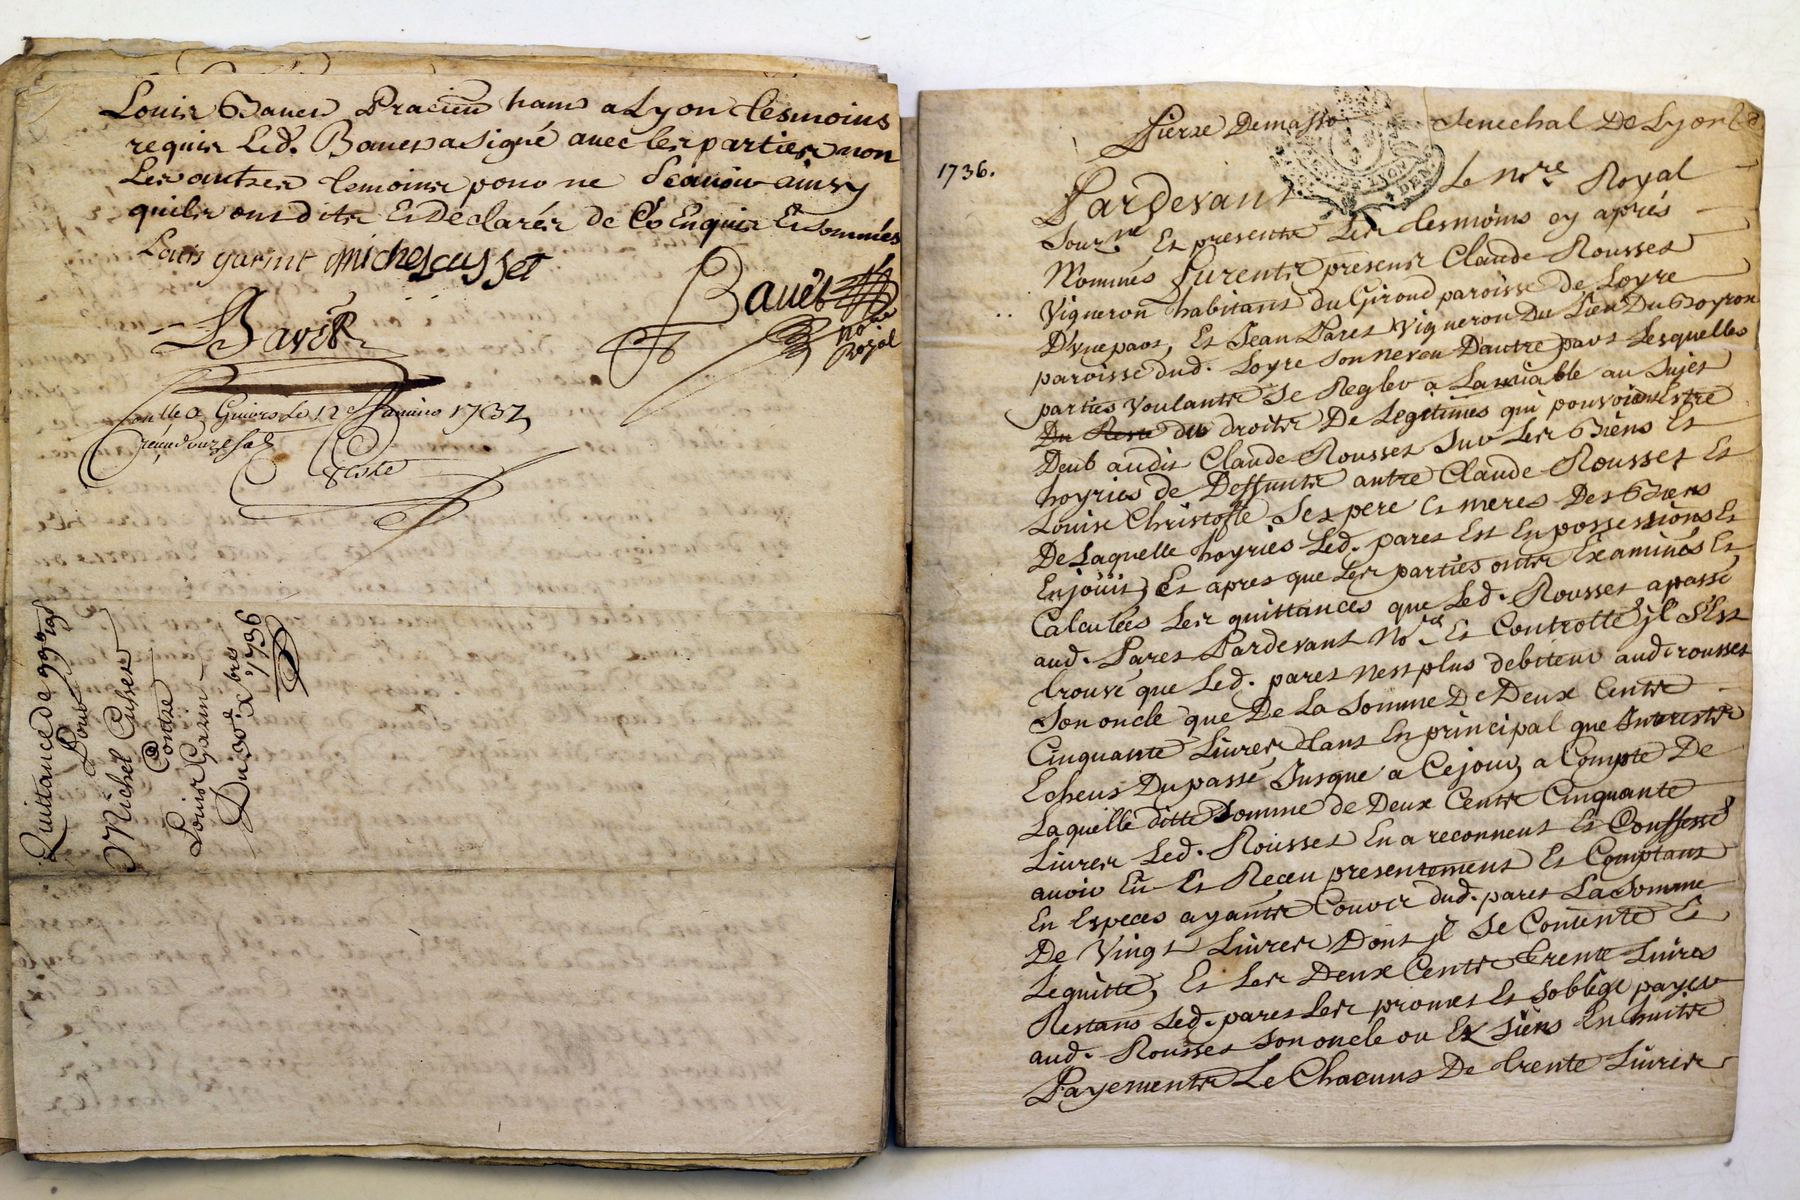 Louis Bauet Pracitien habt a Lyon tesmoins
requis Led. Bauet a signé avec les parties non
Les autres temoins pour ne Scauoir ainsy
quils ont dits Et Declarés de Ce Enquis Et sommés
Louis garint michel cusset
Bauet
no.re
Royal
Bavet
a Giuors le 12e Januier 1737
Quittance de 99
Pour
Michel Cusset
Contre
Louis Garin
Du 30e Xbre
1736
Pierre Demasso Senechal De Lyon
1736.
Pardevant Le no.re Royal
Sous.ne Et presents Les tesmoins cy aprés
Nommés furents presens Claude Rousset
Vigneron habitant du Giroud paroisse de Loyre
D'vne part, Et Jean Paret Vigneron Du Lieu Du Boyron
paroisse dud. Loyre Son neveu Dautre part Lesquelles
parties voulants Se Regler a Lamiable au Sujet
Du Reste du droits De Legitimes qui pouvoient Estre
Deub audit Claude Rousset Sur Les Biens Et
hoyries de Deffunts autre Claude Rousset Et
Louise Christofle Ses pere Et meres Des Biens
De Laquelle hoyries Led. paret Est En possessions Et
Enjouit, Et apres que Les parties onts Examinés Et
Calculées Les quittances que Led. Rousset a passé
aud. Paret Pardevant No.re Et Controllé jl S'Est
trouvé que Led. paret nest plus debiteur aud. rousset
Son oncle que De La Somme De Deux Cents
Cinquante Livres tant En principal que Interests
Echeus Du passé Jusque a Ce jour, a Compte De
Laquelle ditte Somme de Deux Cents Cinquante
Livres Led. Rousset En a reconneut Et Confessé
auoir Eü Et Receu presentement Et Comptant
En Especes ayants Couvir dud. paret La Somme
De Vingt Livres Dont jl Se Contente Et
Lequitte, Et Les Deux Cents trente Livres
Restans Led. paret Les promet Et Soblige payer
aud. Rousset Son oncle ou Ex Siens En huits
Payements Le Chacuns De trente Livres